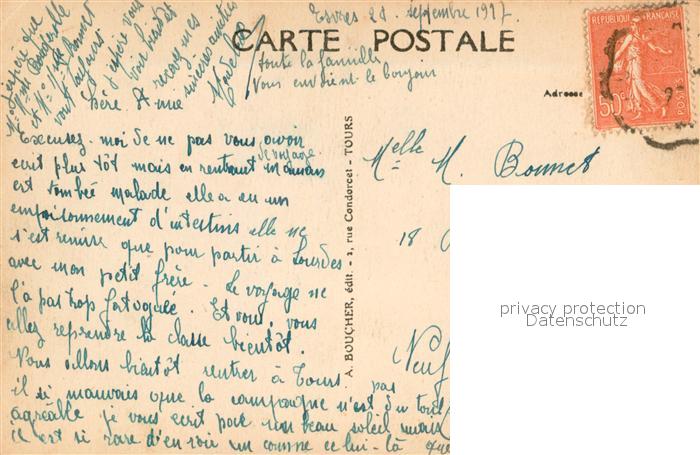 Esvres 28 septembre 1927
CARTE POSTALE
RÉPUBLIQUE FRANÇAISE
POSTES
50c
Adresse
toute la famille
Vous envoient le bonjour
J'espère que
et Mr
vont toujours
J'espère vous
voir bientôt
recevez mes
sincères amitiés
Chère Amie
Excusez-moi de ne pas vous avoir
écrit plus tôt mais en rentrant de voyage maman
est tombée malade elle a eu un
empoisonnement d'intestins elle ne
s'est remise que pour partir à Lourdes
avec mon petit frère. Le voyage ne
l'a pas trop fatiguée. Et vous, vous
allez reprendre la classe bientôt.
Nous allons bientôt rentrer à Tours.
il si mauvais que la campagne n'est pas du tout
agréable je vous écrit par un beau soleil mais
il est si rare d'en voir un comme celui-là que
A. BOUCHER, édit. - 2, rue Condorcet - TOURS
Melle M. Bonnet
18
Neuf
privacy protection
Datenschutz